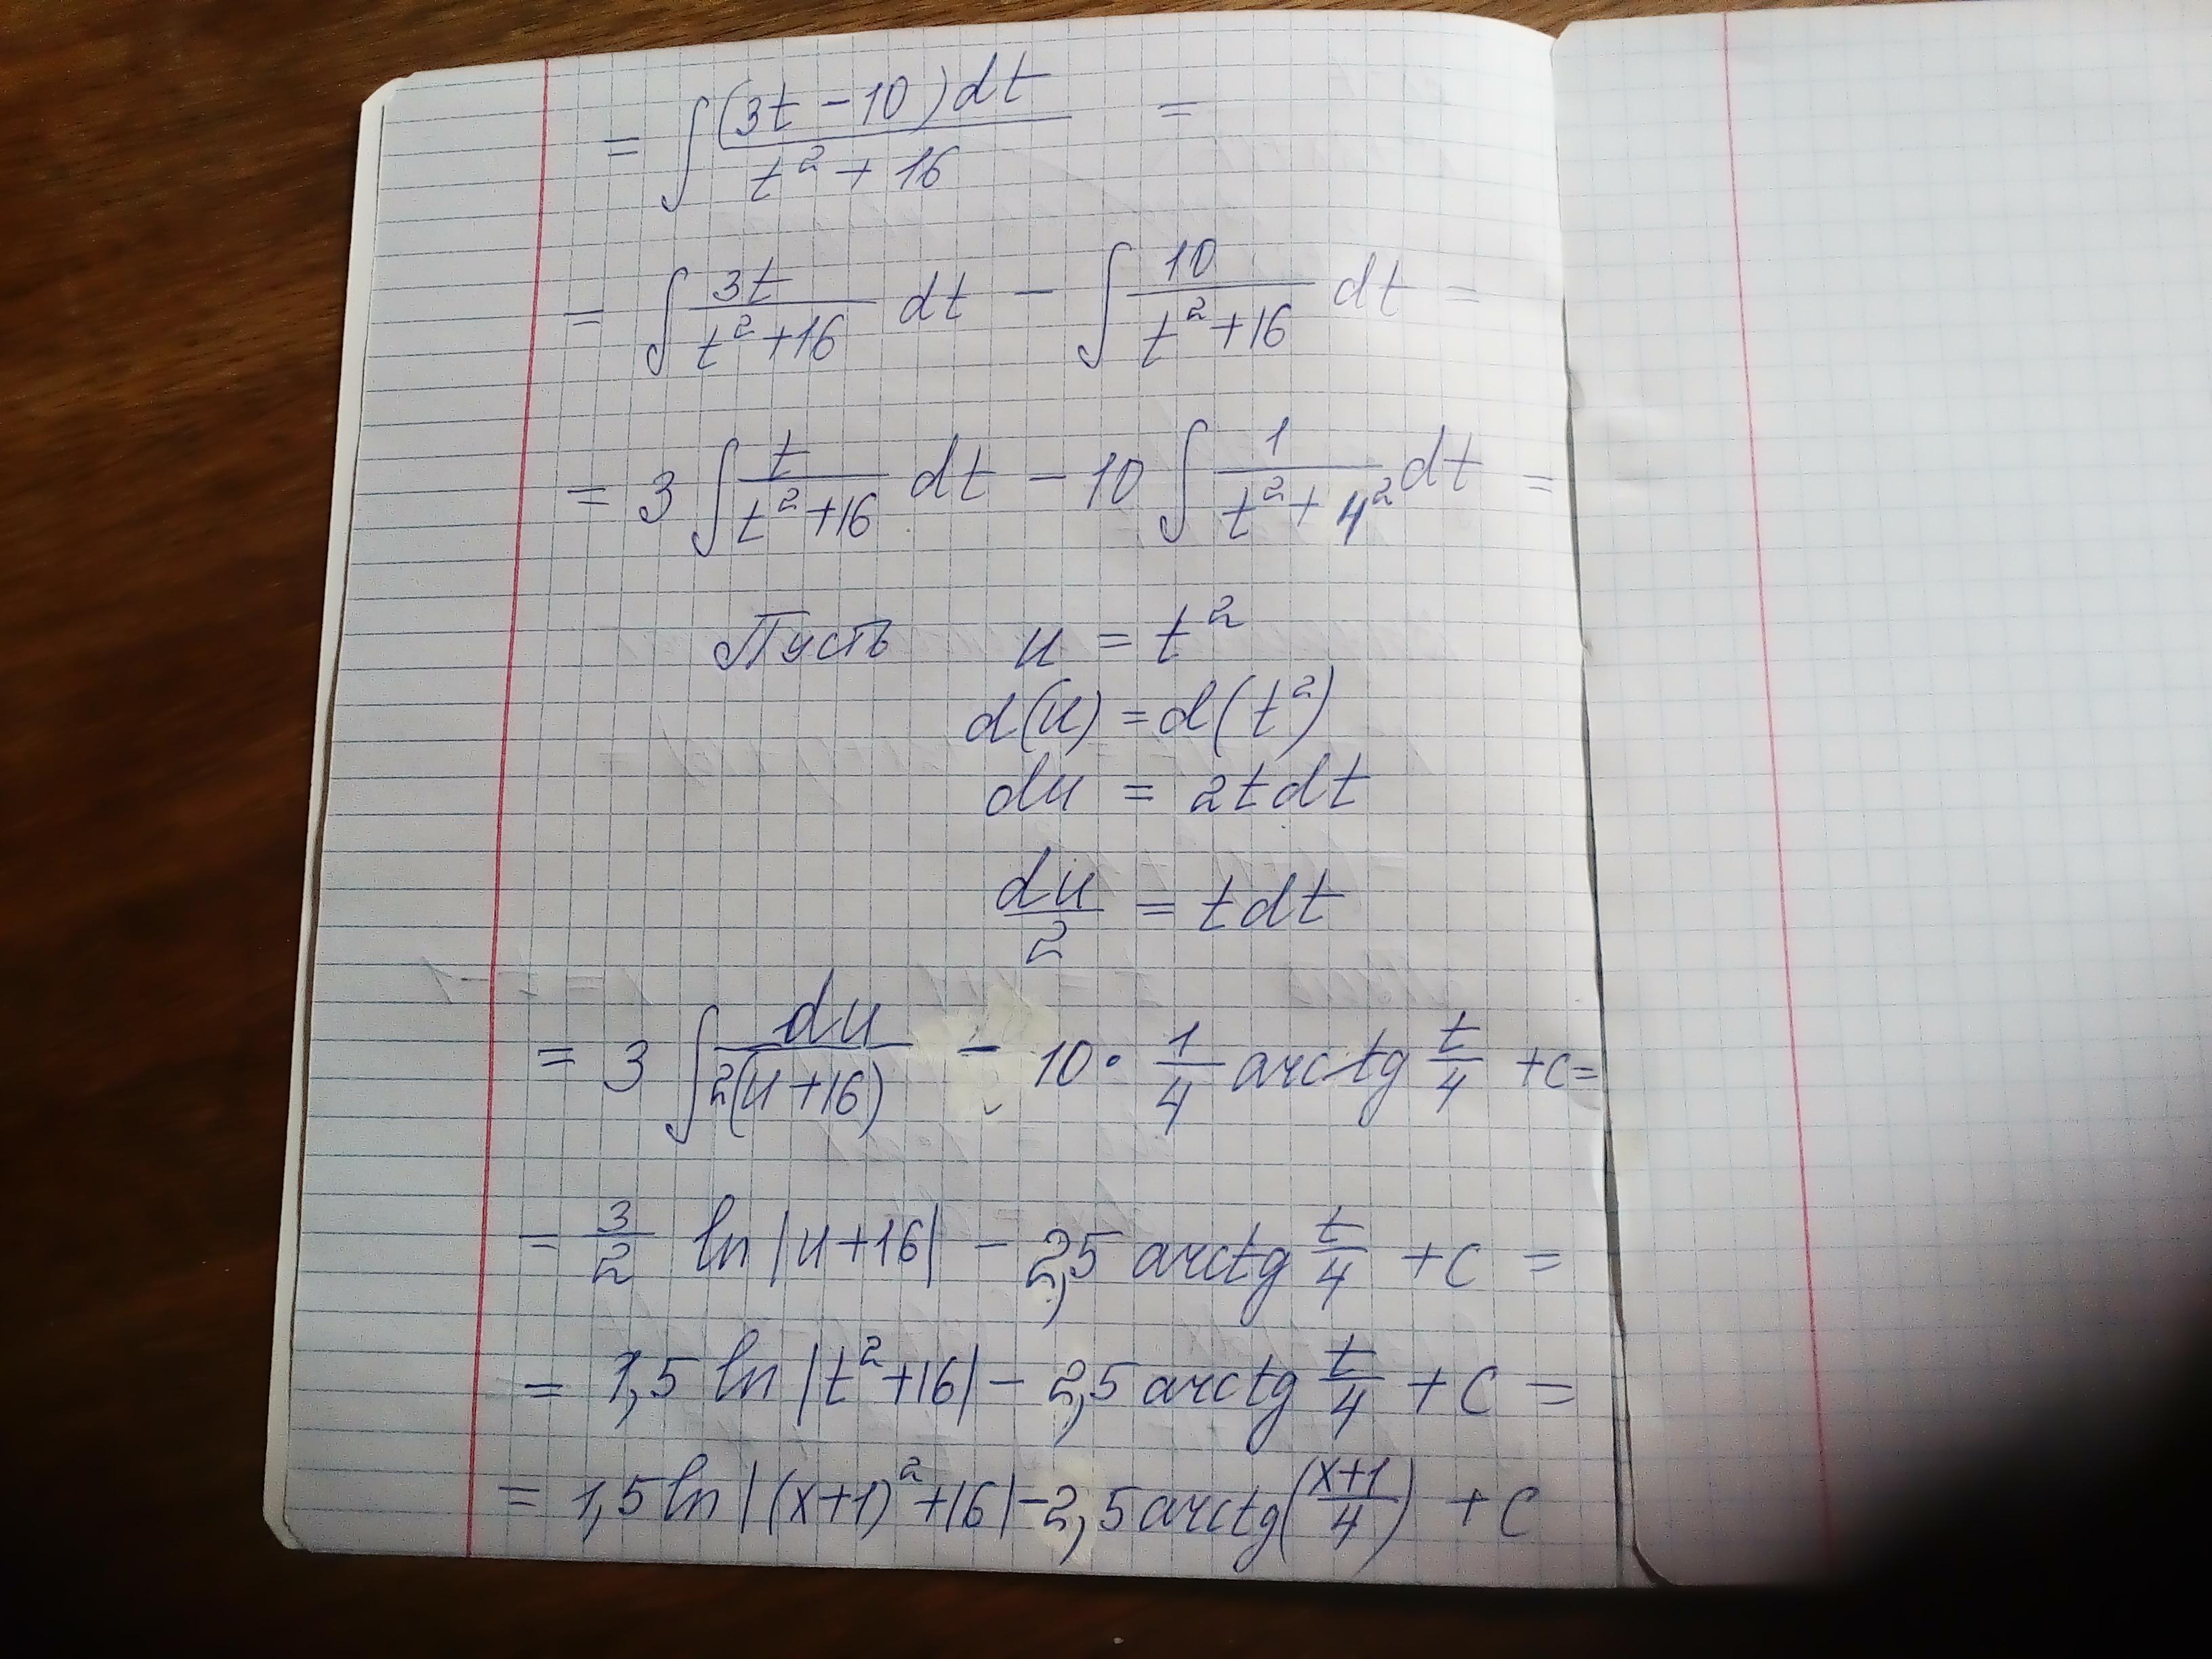 = ∫ (3t - 10) dt / t² + 16 =
= ∫ 3t / t² + 16 dt - ∫ 10 / t² + 16 dt =
= 3 ∫ t / t² + 16 dt - 10 ∫ 1 / t² + 4² dt =
Пусть u = t²
d(u) = d(t²)
du = 2tdt
du / 2 = tdt
= 3 ∫ du / 2(u + 16) - 10 · 1/4 arctg t/4 + c =
= 3/2 ln |u + 16| - 2,5 arctg t/4 + c =
= 1,5 ln |t² + 16| - 2,5 arctg t/4 + C =
= 1,5 ln |(x+1)² + 16| - 2,5 arctg (x+1 / 4) + C